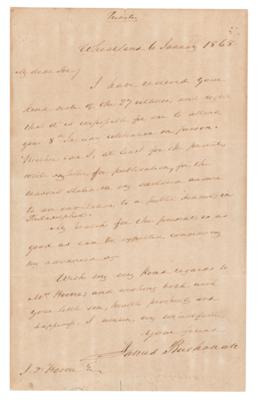 Private
Wheatland 6 January 1868
My dear Sir/
I have received your
kind note of the 27 ultimo, and regret
that it is impossible for me to attend
your 8th January celebration in person.
Neither can I, at least for the present,
write a letter for publication, for the
reasons stated in my
to an invitation to a public dinner in
Philadelphia.
My health for the present is as
good as can be expected considering
my advanced age.
With my very kind regards to
Mrs and wishing both and
your little son, health prosperity and
happiness, I remain, very respectfully
Your friend
James Buchanan
J